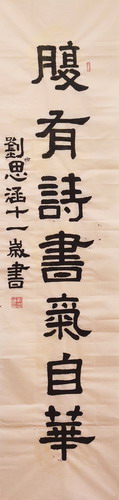 腹有詩書氣自華
劉思涵十一歲書